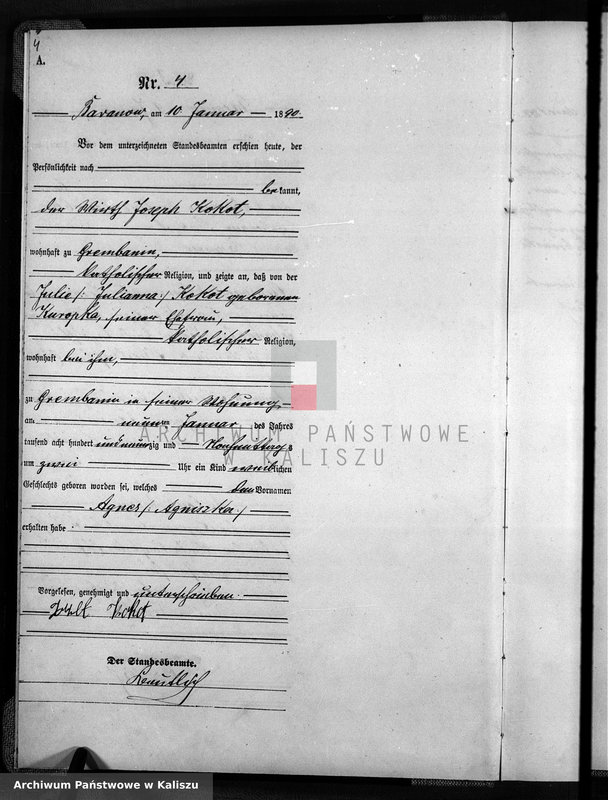 4
A.
Nr. 4
Baranow, am 10 Januar 1890.
Vor dem unterzeichneten Standesbeamten erschien heute, der
Persönlichkeit nach
bekannt,
der Wirth Joseph Kokot,
wohnhaft zu Grembanin,
katholischer Religion, und zeigte an, daß von der
Julie /: Julianna :/ Kokot geborenen
Kuropka, seiner Ehefrau,
katholischer Religion,
wohnhaft bei ihm,
zu Grembanin in seiner Wohnung,
am neunten Januar des Jahres
tausend acht hundert und neunzig und Nachmittag s
um zwei Uhr ein Kind weiblichen
Geschlechts geboren worden sei, welches den Vornamen
Agnes /: Agniszka :/
erhalten habe
Vorgelesen, genehmigt und unterschrieben.
Kokot
Der Standesbeamte.
ARCHIWUM PAŃSTWOWE
W KALISZU
Archiwum Państwowe w Kaliszu